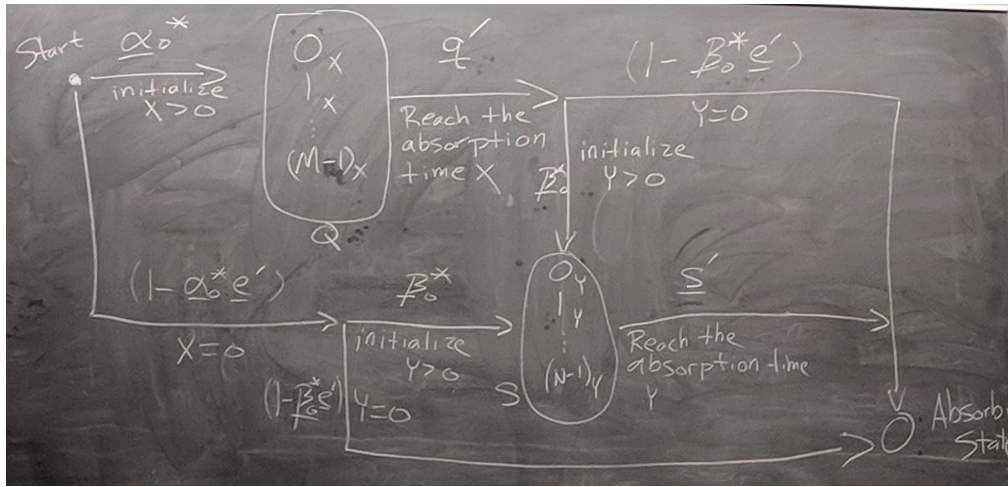 Start
α₀*
initialize
X>0
0x
1x
(M-1)x
Q
q′
Reach the
absorption
time X
(1-β₀*e′)
Y=0
β₀*
initialize
Y>0
(1-α₀*e′)
X=0
β₀*
initialize
Y>0
(1-β₀*e′)
Y=0
0Y
1Y
(N-1)Y
S
s′
Reach the
absorption time
Y
Absorb
Stat